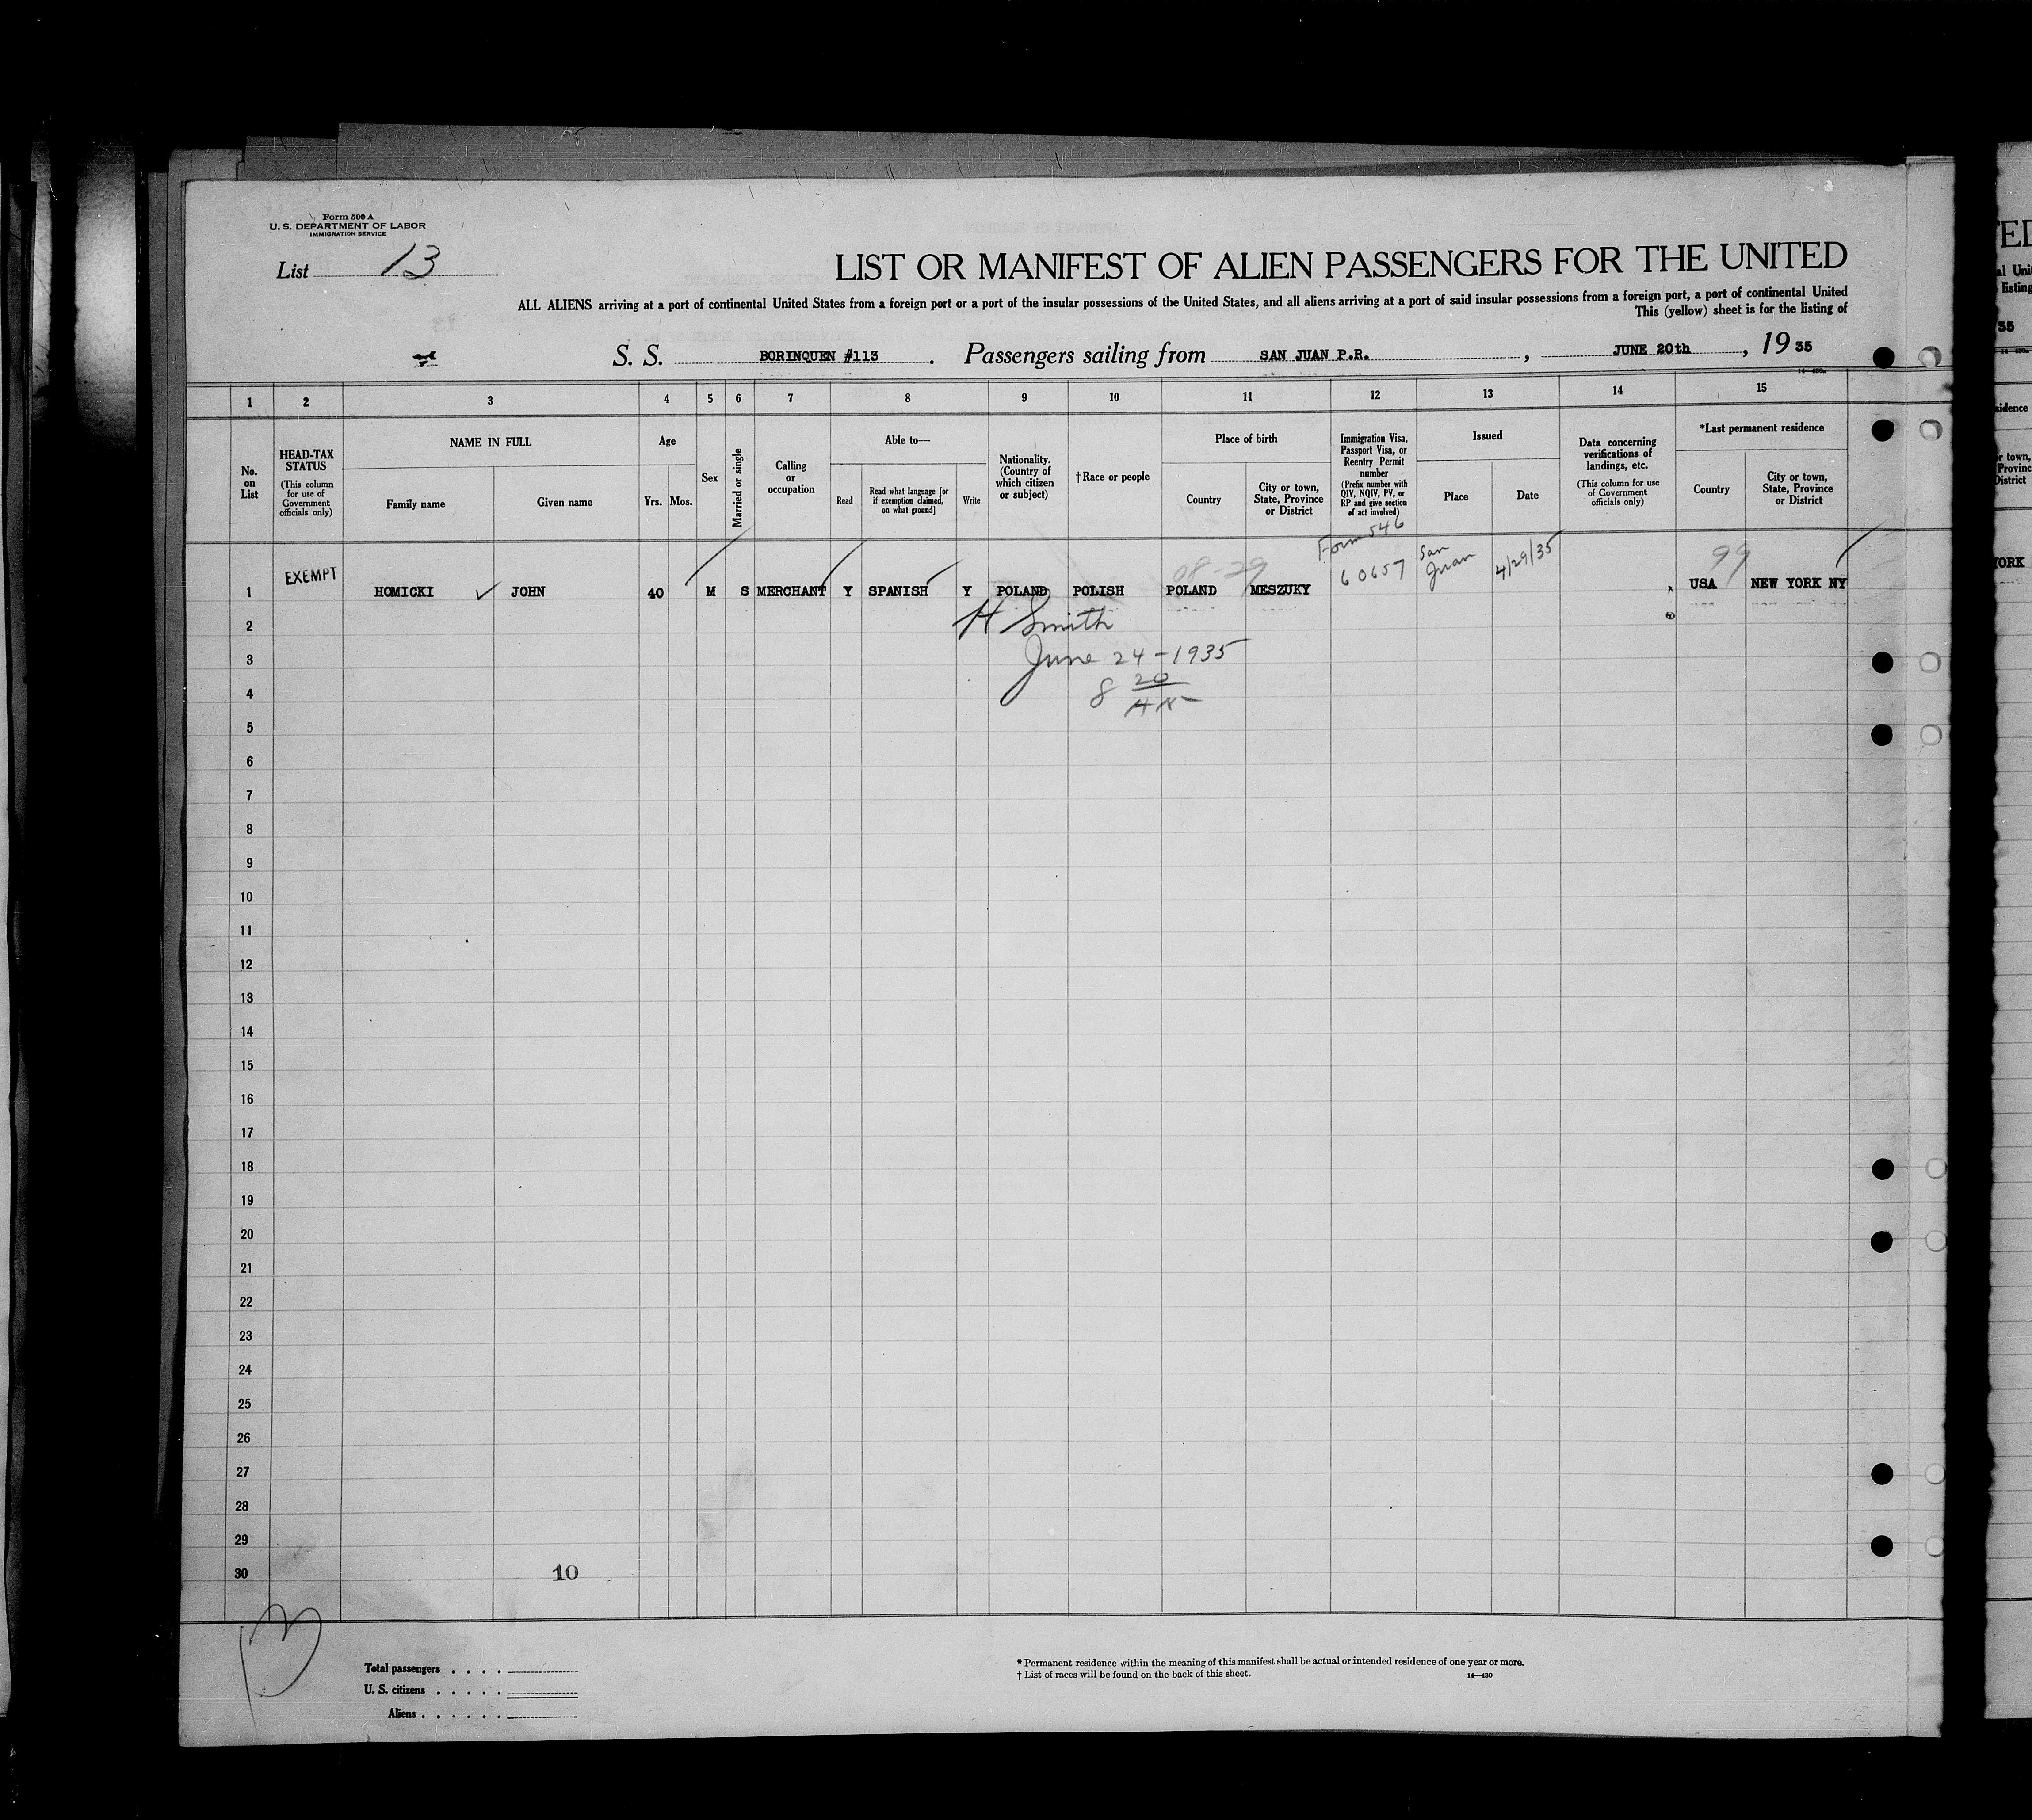 Form 500 A
U. S. DEPARTMENT OF LABOR
IMMIGRATION SERVICE
List 13
LIST OR MANIFEST OF ALIEN PASSENGERS FOR THE UNITED
ALL ALIENS arriving at a port of continental United States from a foreign port or a port of the insular possessions of the United States, and all aliens arriving at a port of said insular possessions from a foreign port, a port of continental United
This (yellow) sheet is for the listing of
S. S. BORINQUEN #113 . Passengers sailing from SAN JUAN P.R. , JUNE 20th , 19 35
1 2 3 4 5 6 7 8 9 10 11 12 13 14 15
No. on List
HEAD-TAX STATUS (This column for use of Government officials only)
NAME IN FULL
Family name
Given name
Age
Yrs. Mos.
Sex
Married or single
Calling or occupation
Able to—
Read
Read what language [or if exemption claimed, on what ground]
Write
Nationality. (Country of which citizen or subject)
†Race or people
Place of birth
Country
City or town, State, Province or District
Immigration Visa, Passport Visa, or Reentry Permit number (Prefix number with QIV, NQIV, PV, or RP and give section of act involved)
Issued
Place
Date
Data concerning verifications of landings, etc. (This column for use of Government officials only)
*Last permanent residence
Country
City or town, State, Province or District
Form 546
08-29
99
1 EXEMPT HOMICKI ✓ JOHN 40 M S MERCHANT Y SPANISH Y POLAND POLISH POLAND MESZUKY 60657 San Juan 4/29/35 USA NEW YORK NY
2 H Smith
3 June 24-1935
4 8 20
5
6
7
8
9
10
11
12
13
14
15
16
17
18
19
20
21
22
23
24
25
26
27
28
29
30 10
Total passengers
U. S. citizens
Aliens
* Permanent residence within the meaning of this manifest shall be actual or intended residence of one year or more.
† List of races will be found on the back of this sheet.
14—430
35
YORK